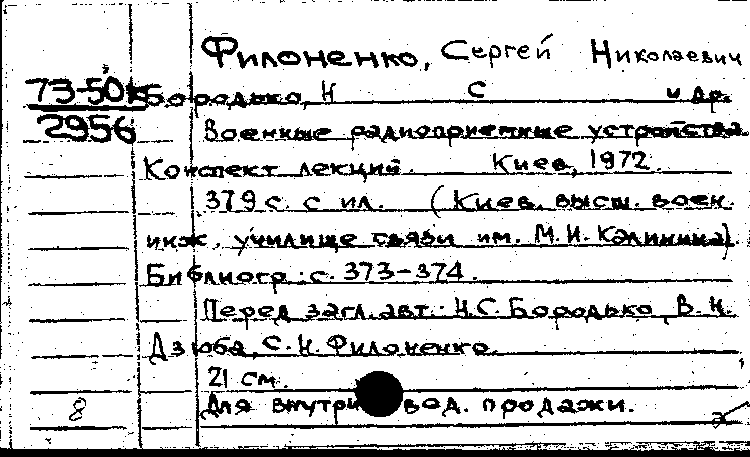 Филоненко, Сергей Николаевич
73-50к Бородько, Н С и др.
2956 Военные радиоприемные устройства.
Конспект лекций. Киев, 1972.
379 с. с ил. (Киев. высш. воен.
инж. училище связи им. М.И. Калинина).
Библиогр.: с. 373-374.
Перед загл. авт.: Н.С. Бородько, В.Н.
Дзюба, С.Н. Филоненко.
21 см.
8 Для внутривед. продажи.